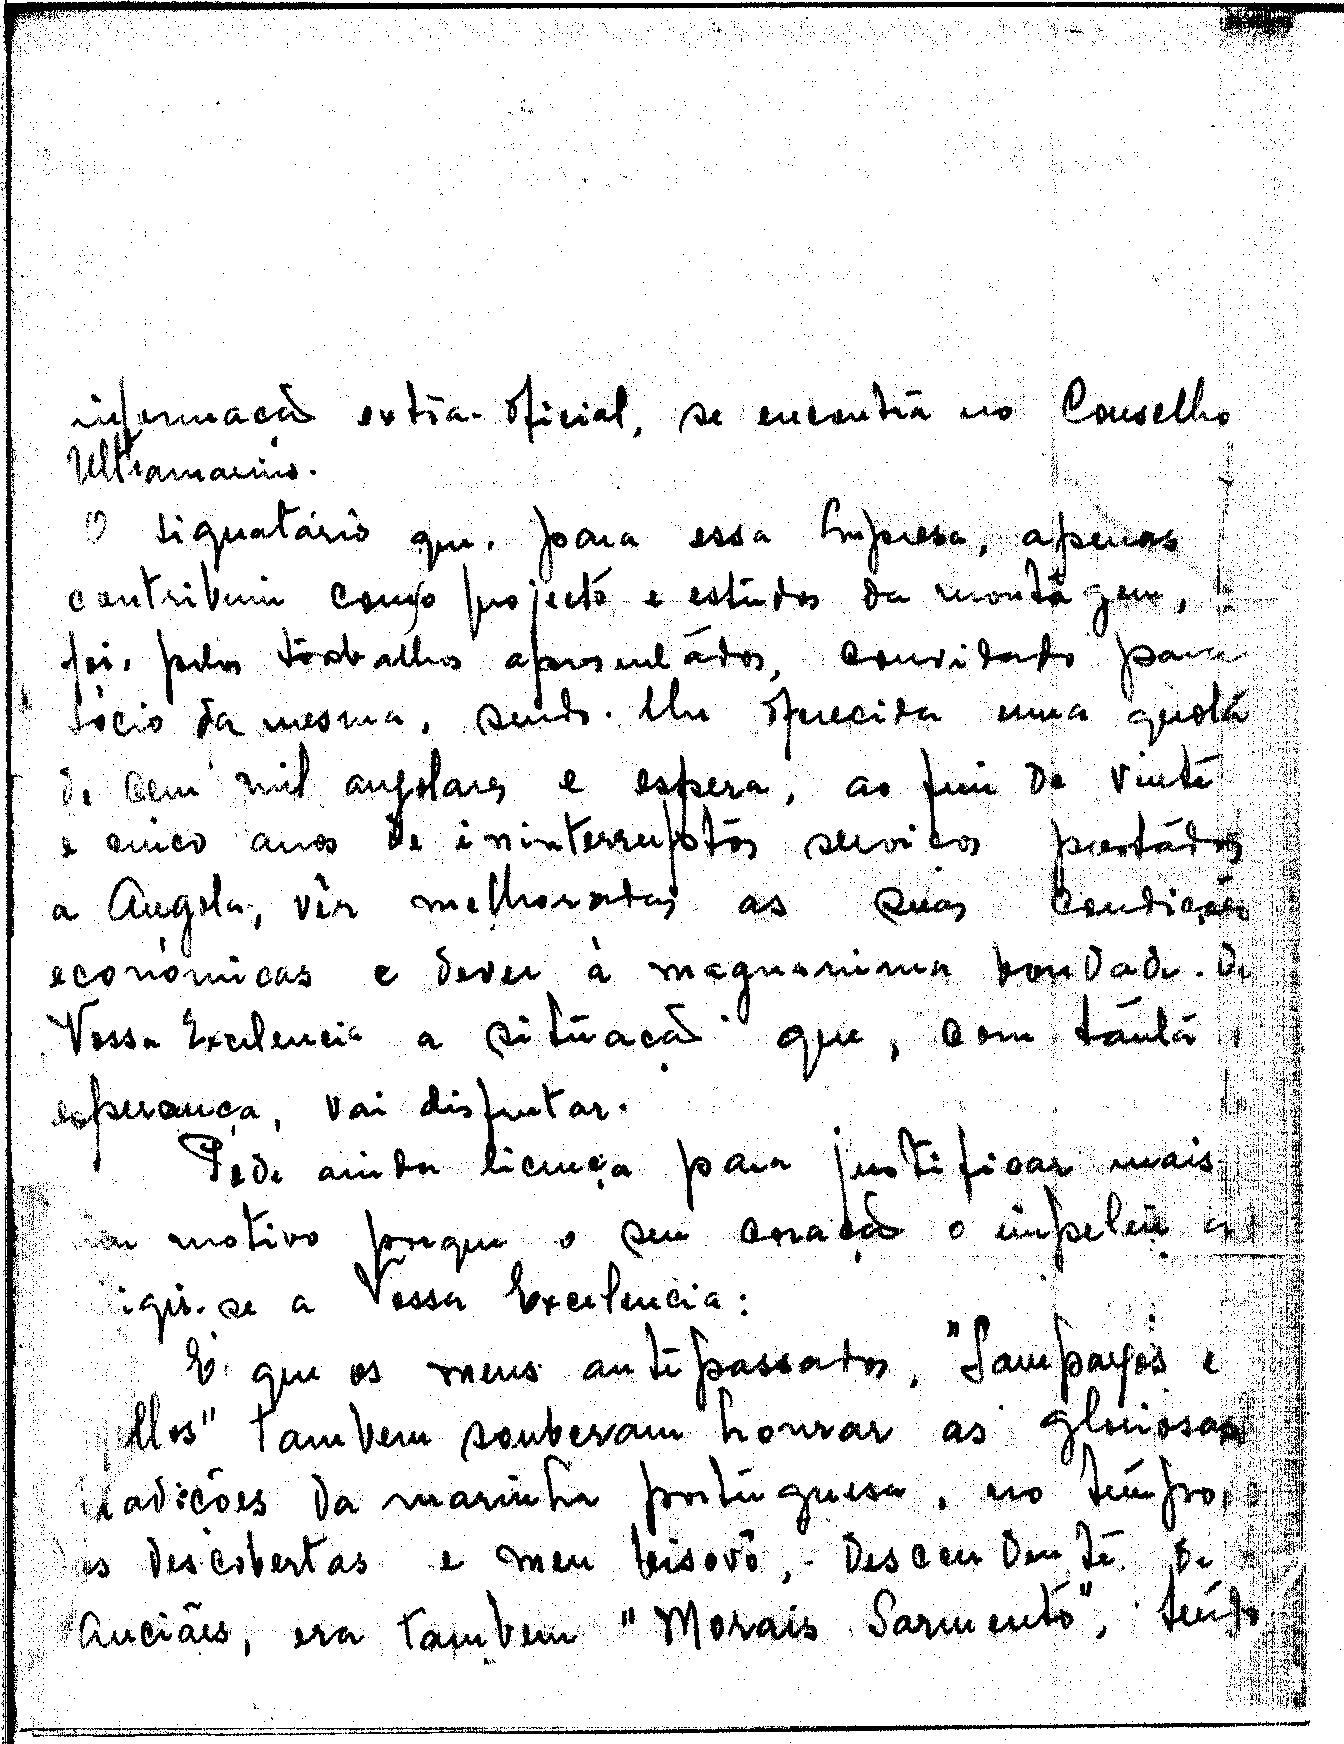 informação extra-oficial, se encontra no Conselho
Ultramarino.
O signatário que, para essa Empresa, apenas
contribuiu com o projecto e estudos da montagem,
foi, pelos trabalhos apresentados, convidado para
sócio da mesma, sendo-lhe oferecida uma quota
de cem mil angolares e espera, ao fim de vinte
e cinco anos de ininterruptos serviços prestados
a Angola, vêr melhoradas as suas condições
económicas e dever à magnanima bondade de
Vossa Excelencia a situação que, com tanta
esperança, vai disfrutar.
Pede ainda licença para justificar mais
motivo porque o seu coração o impeliu a
igir-se a Vossa Excelencia:
É que os meus antepassados, "Sampayos e
llos" tambem souberam honrar as gloriosas
tradições da marinha portuguesa, no tempo
das descobertas e meu bisovô, descendente de
Anciães, era tambem "Morais Sarmento", tendo